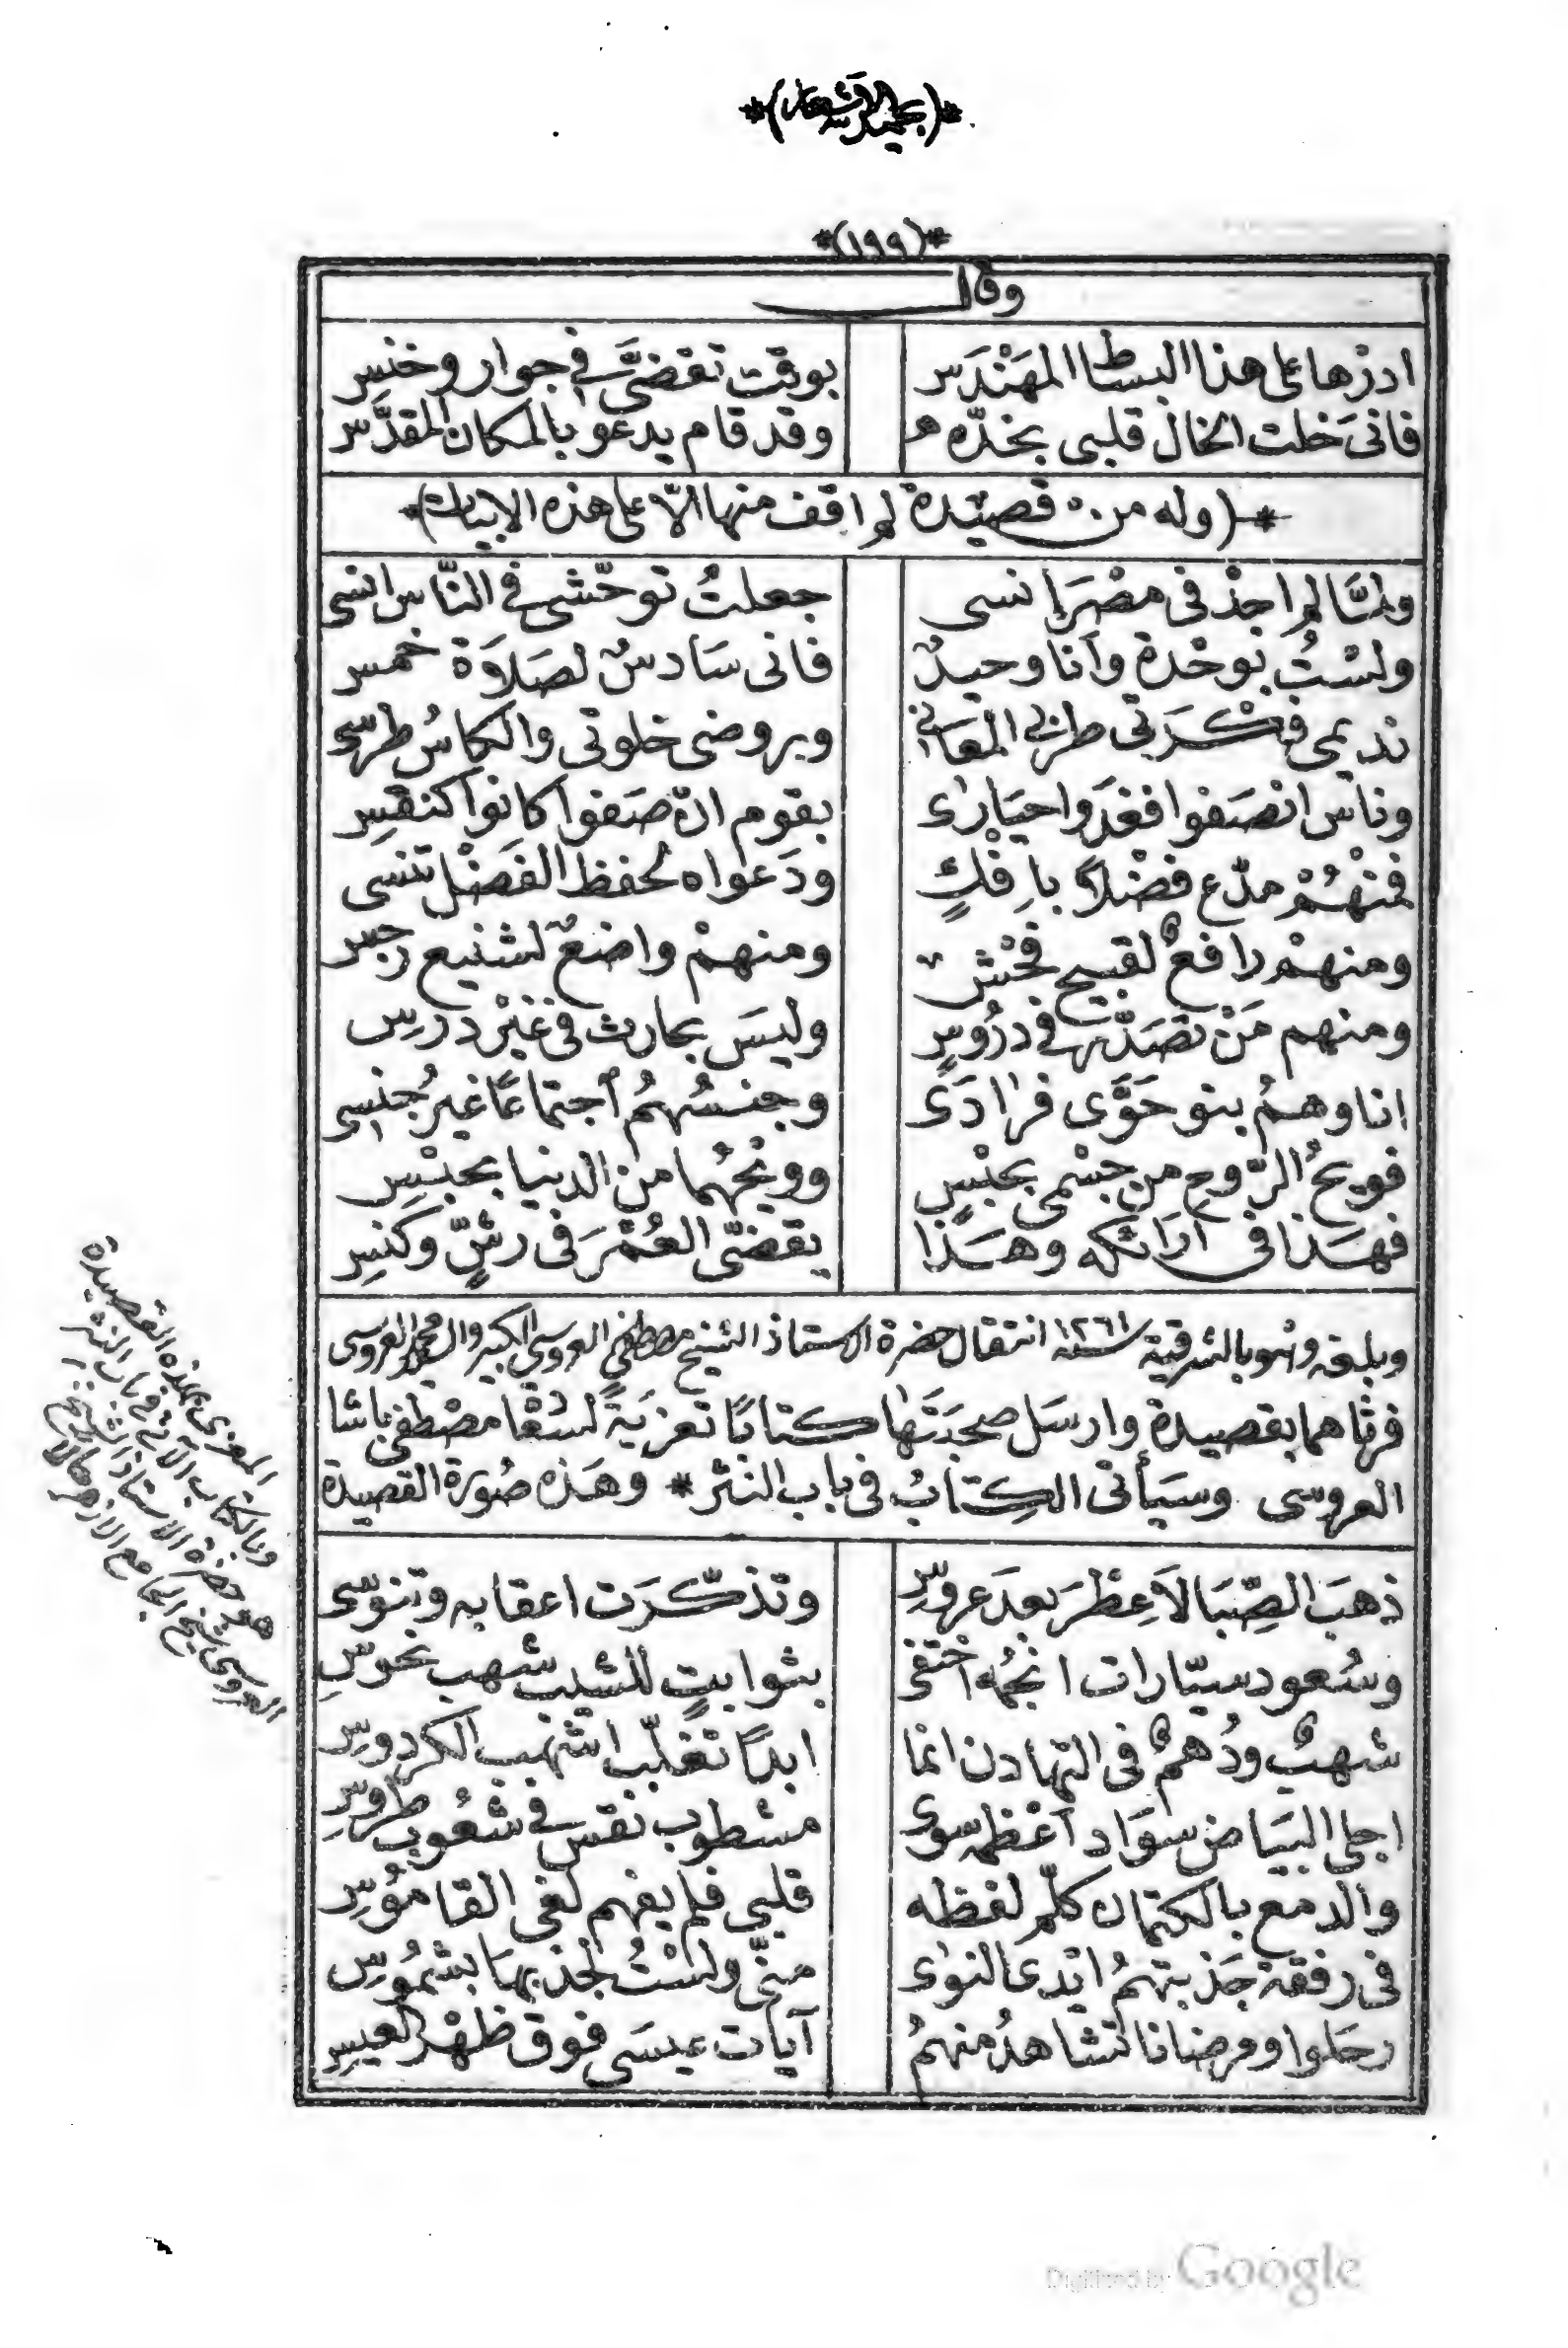 *(١٩٩)*
وقال
ادرها على هذا البساط المهندس بوقت تقضّى فى جوار وخنس
فانى خلت الخال قلبى بخدّه وقد قام يدعو بالمكان المقدّس
*(وله من قصيدة لم اقف منها الّا على هذه الابيات)*
ولمَّا لم اجدْ فى مصْرَ انسى جعلتُ توحّشى فى النَّاس انسى
ولسْتُ بوحْدة وأنا وحيدٌ فانى سَادسٌ لصَلاوَة خمس
نديمى فكْرَتى طربى المعَانى وبروضى خلوتى والكاسُ طرسى
وناس انصَفوا فغدَوا حيَارى بقوم انْ صَفوا كانوا كنقس
فمنْهُمْ مدّع فضْلاً بافْكٍ ودَعواه لحفظ الفَضْل تنسى
ومنهمْ رافعٌ لقبيح فحْش ومنهمْ واضعٌ لشنيع رجس
ومنهم مَنْ تصَدَّى فى درُوسٍ وليسَ بحارث فى غيْر درس
انا وهمُ بنو حَوَّى فرادَى وجنسُهمُ اجتماعًا غير جنسى
فويحُ الرّوح من جسْمى بحبْسٍ وويحُهما من الدنيا بحبْسِ
فهَذا فى ارَائكه وهَذا يقضّى العُمْرَ فى رشٍّ وكنسِ
وبلغه وهُو بالشرقية سنة ١٢٦١ انتقال حضرة الاستاذ الشيخ مصطفى العروسى الكبير والشيخ محمد العروسى
فرثاهما بقصيدة وارسَل صحبَتَها كتابًا تعزيَة لشقا مصْطفى باشا
العروسى وسيَأتى الكِتابُ فى باب النثر * وهَذه صُورة القصيدة
ذهبَ الصِّبَا لاَ عِطْرَ بعدَ عروسِ وتذكّرَت اعقابه وتنوسى
وسُعود سيّارات انجُمه اخْتفى بثوابتٍ للشيب شهب نحوسِ
شهبٌ ودُهمٌ فى التهادن انما ابدًا تغلّب اشهب الكردوسِ
اجلى البيَاض سوَاد أعْظمه سوى مشطوب نقس فى شعُوب طروسِ
والدمع بالكتمان كلّم لفظه قلبى فلم يفهم لغى القامُوسِ
فى رفقة جَذبتهمُ ايْدى النوى منّى ولسْتُ لجذبهَا بشمُوسِ
رحَلوا ومرضانا تشاهدُ منهمُ آيات عيسَى فوق ظهْر العيسِ
المعزى بهذه القصيدة
وبالكتاب الآتى فى باب النثر
هو حضرة الاستاذ الشيخ
العروسى شيخ الجامع الازهر حالا
Digitized by Google